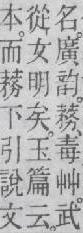 名。廣韵。蓩、毒艸。武
從女明矣。玉篇云。
本。而蓩下引說文